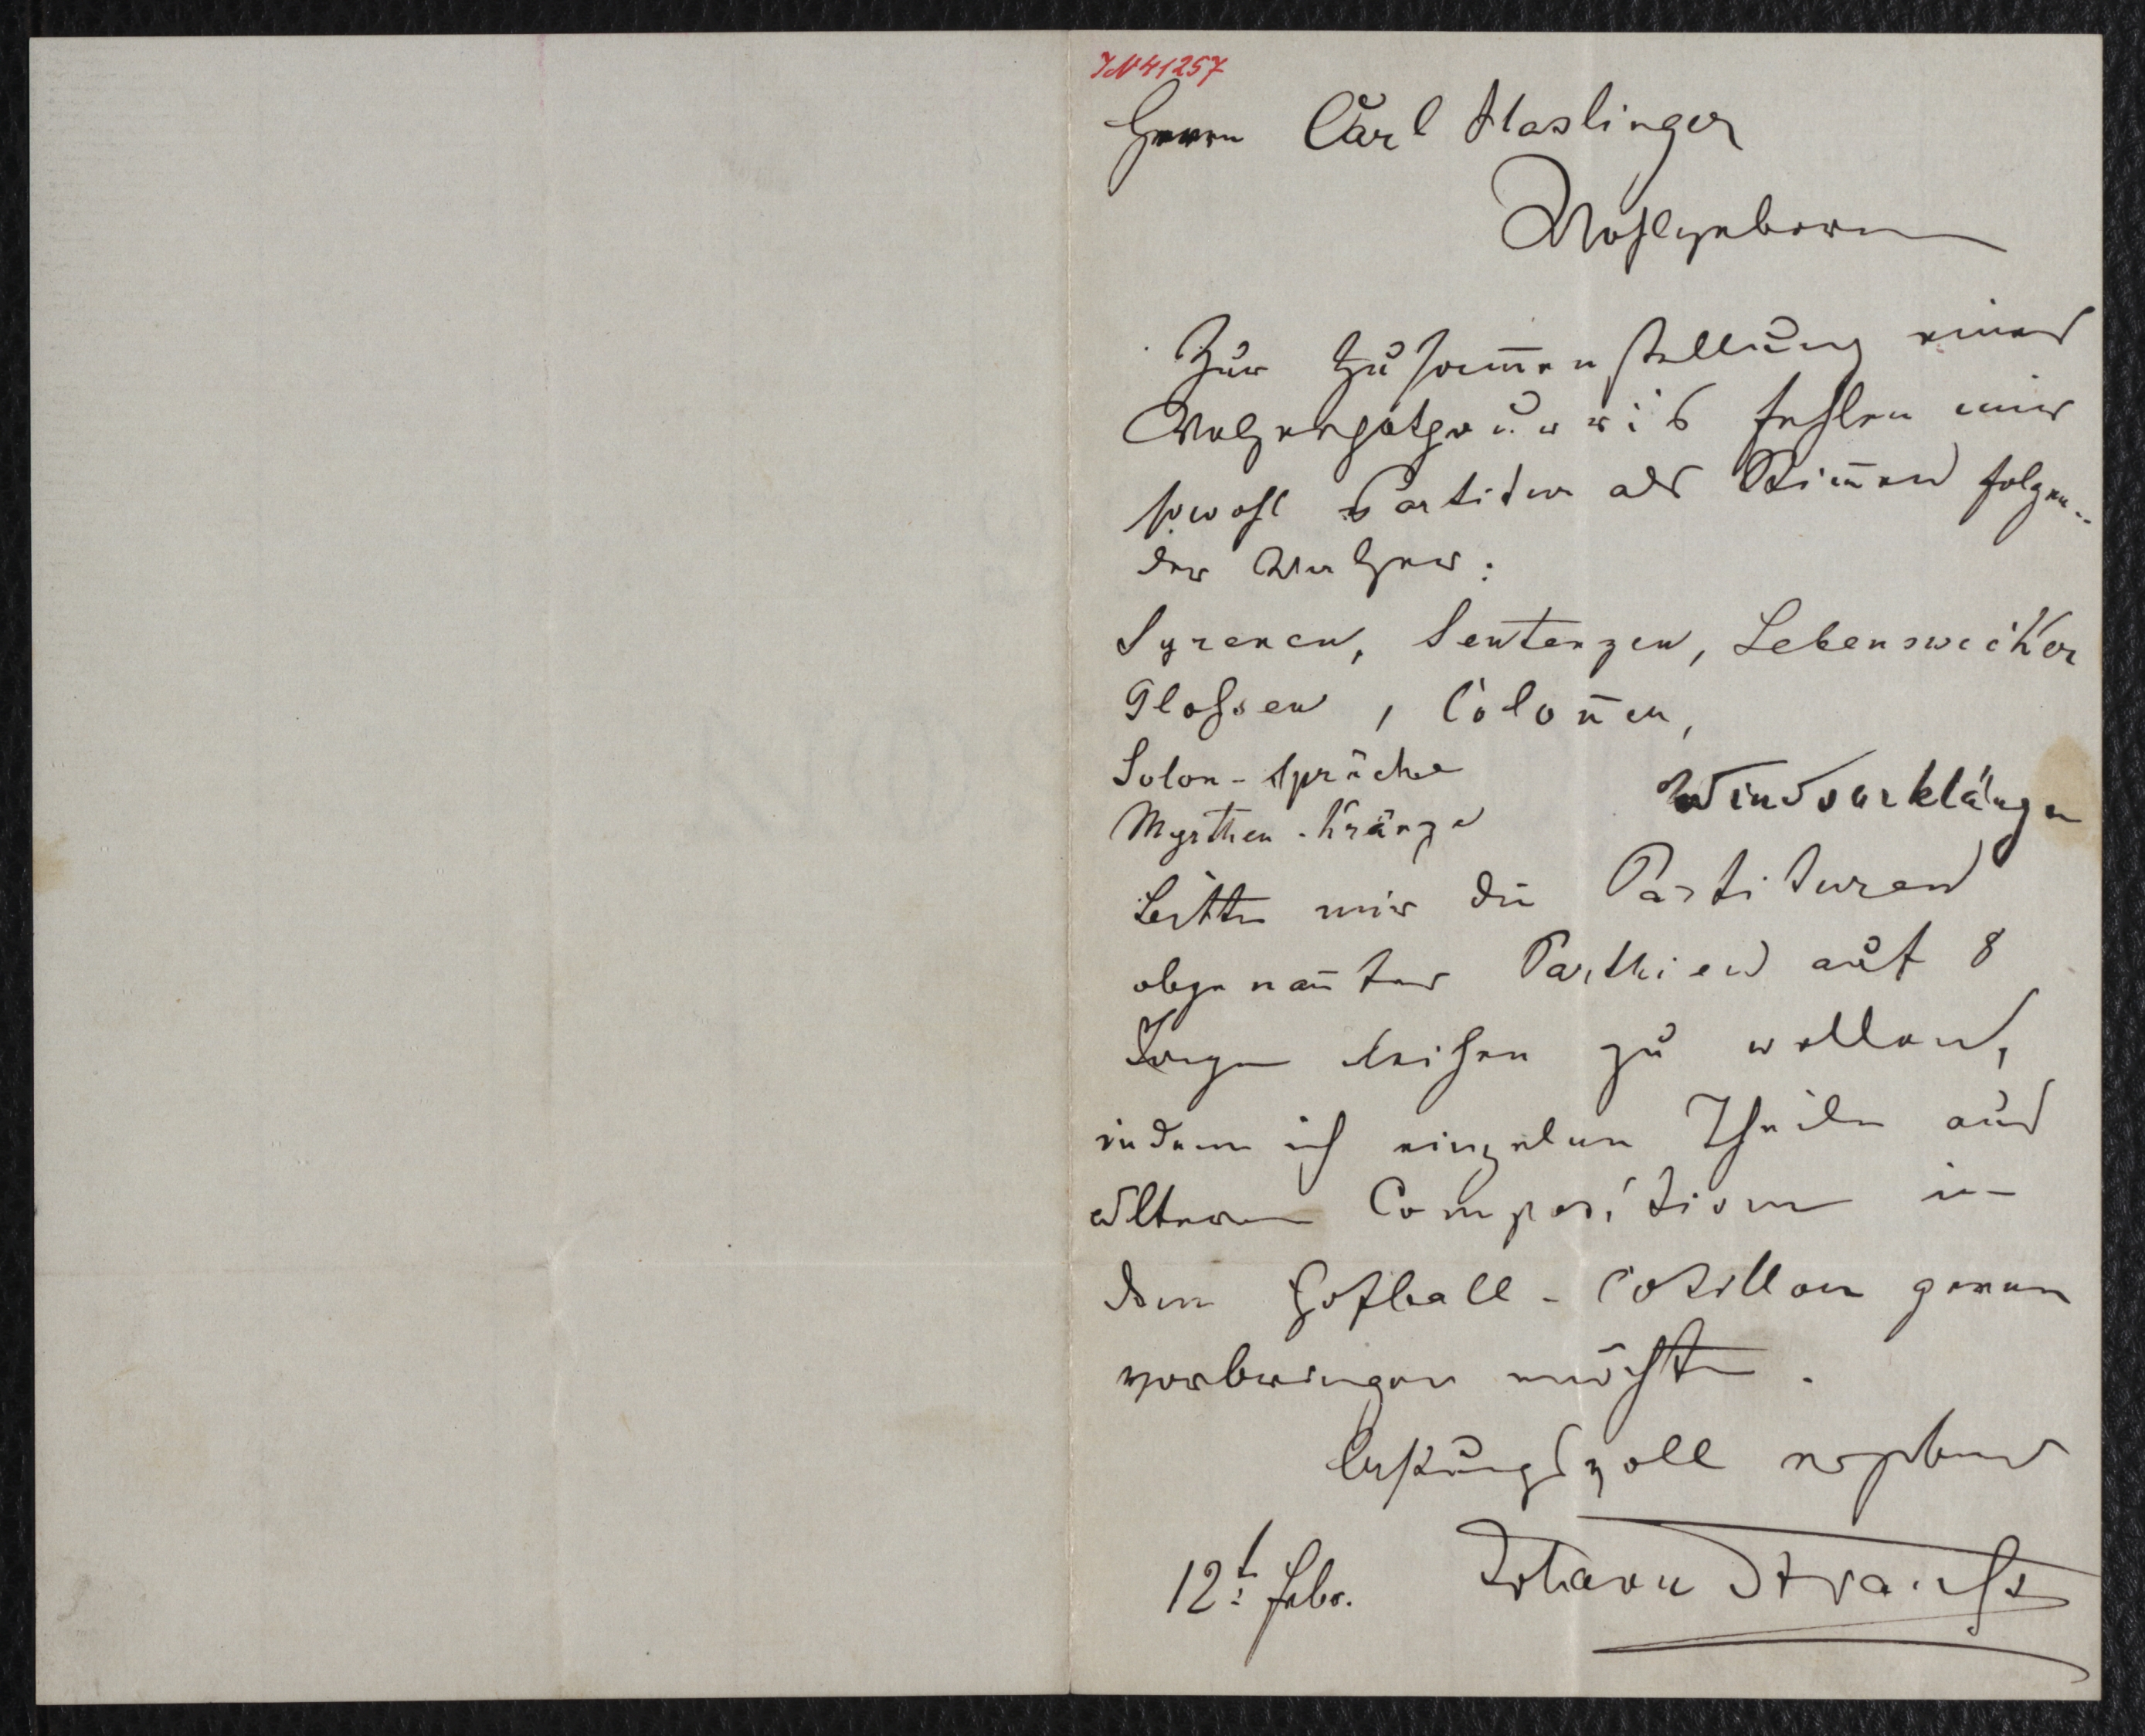 IN 41257
Herrn Carl Haslinger
Wohlgeborn
Zur Zusam̄enstellung eines
Walzerpotpourris fehlen mir
sowohl Partitur als Stim̄en folgen=
der Walzer:
Syrenen, Sentenzen, Lebenswecker
Glossen, Colon̄en,
Solon-Sprüche
Windsorklänge
Myrthen-Kränze
bitte mir die Partituren
obgenan̄ter Parthien auf 8
Tage leihen zu wollen,
indem ich einzelne Theile aus
ältern Compositionen in
dem Hofball-Cotillon gerne
vorbringen möchte.
Achtungsvoll ergebenst
12t: Febr. Johann Strauss